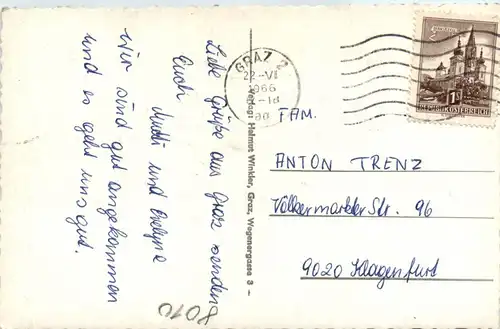 Liebe Grüße aus Graz senden
Euch
Mutti und Evelyne
Wir sind gut angekommen
und es geht uns gut.
8010
Verlag: Helmut Winkler, Graz, Wegenergasse 3 -
GRAZ 2
22-VI
1966
-18
REPUBLIK ÖSTERREICH
FAM.
ANTON TRENZ
Völkermarkter Str. 96
9020 Klagenfurt